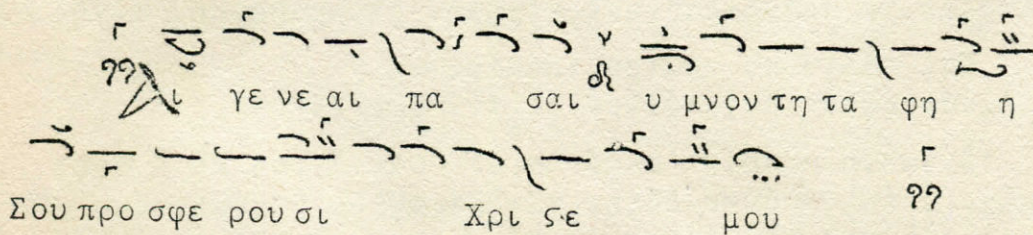 Αι γε νε αι πα σαι υ μνον τη τα φη η
Σου προ σφε ρου σι Χρι ϛε μου